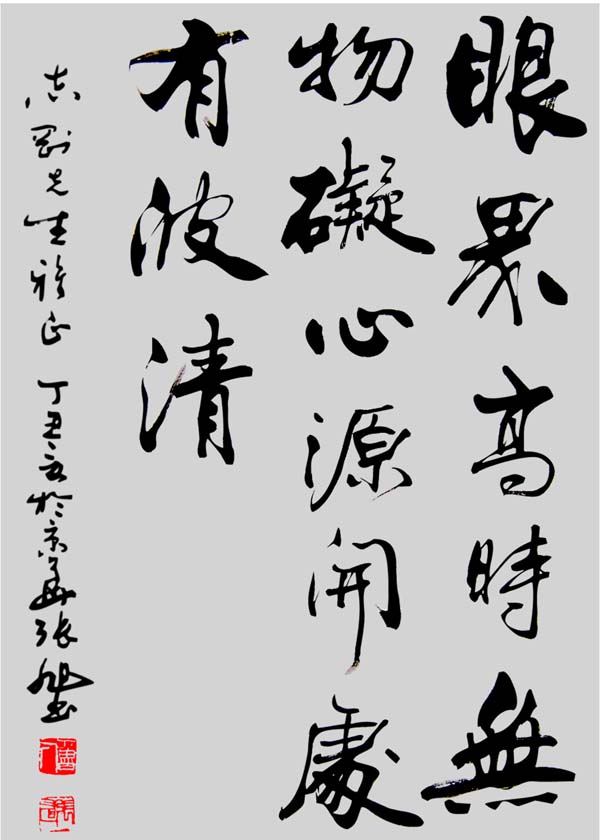 眼界高時無
物礙心源開處
有波清
志剛先生雅正 丁丑 於京華張旭書